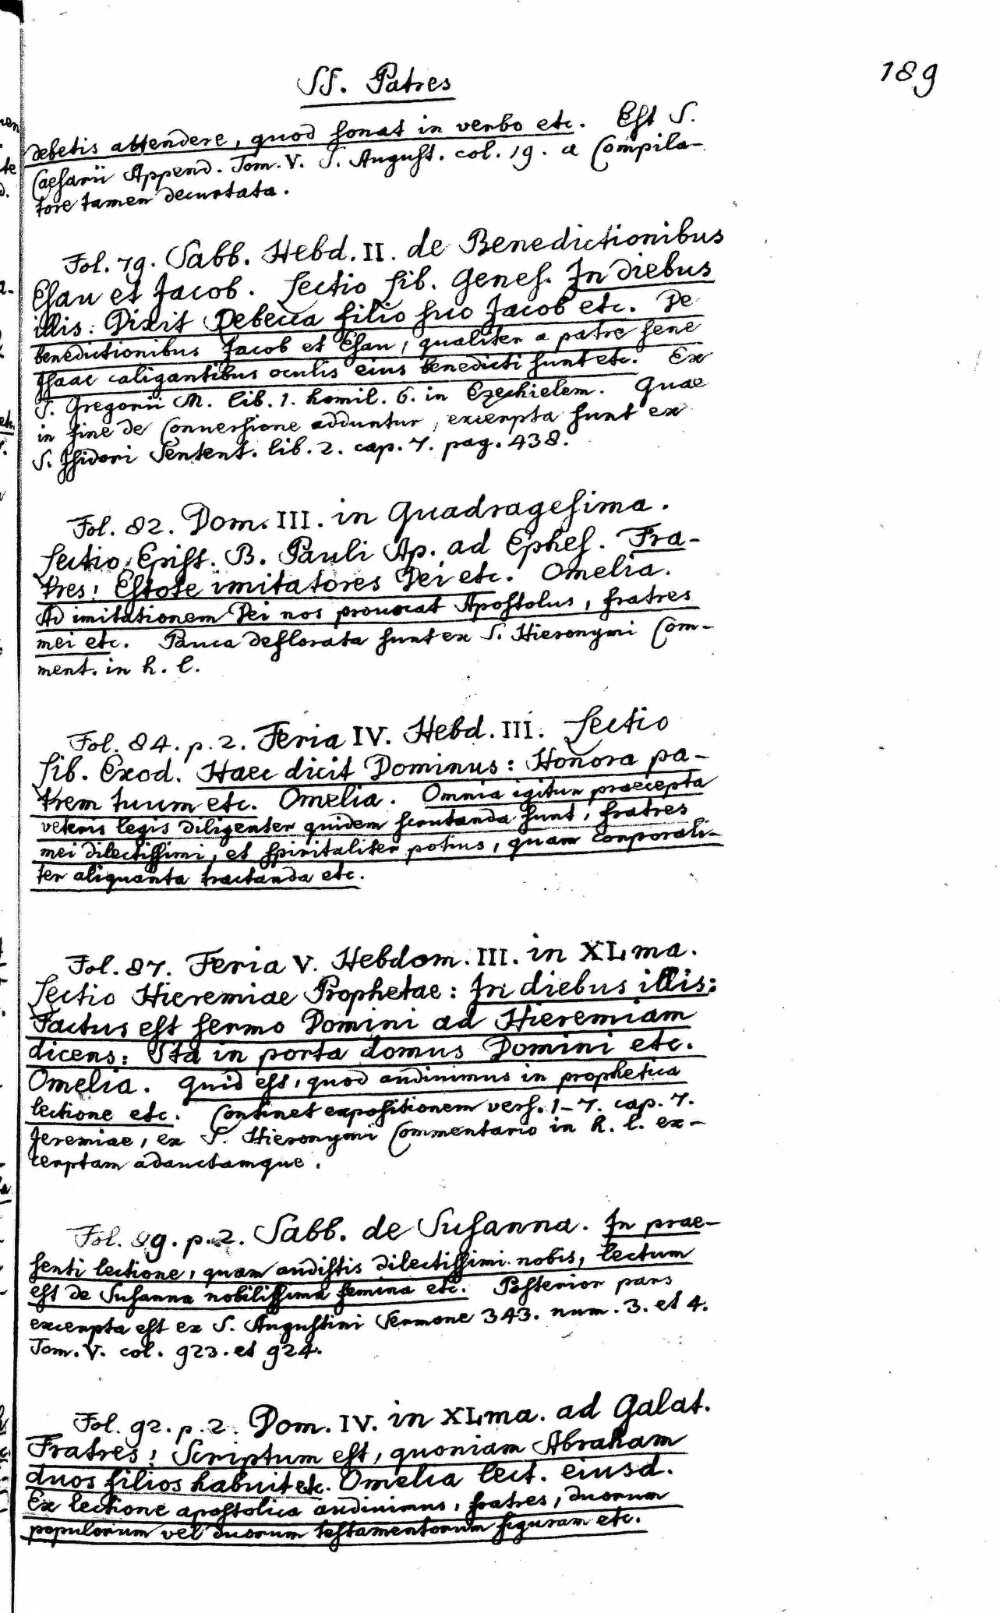 SS. Patres
189
debetis attendere, quod sonat in verbo etc. Est S.
Caesarii Append. Tom. V. S. August. col. 19. a Compila-
tore tamen decurtata.
Fol. 79. Sabb. Hebd. II. de Benedictionibus
Esau et Jacob. Lectio lib. Genes. In diebus
illis: Dixit Rebecca filio suo Jacob etc. De
benedictionibus Jacob et Esau, qualiter a patre sene
Isaac caligantibus oculis eius benedicti sunt etc. Ex
S. Gregorii M. lib. 1. homil. 6. in Ezechielem. Quae
in fine de Conversione adduntur, excerpta sunt ex
S. Isidori Sentent. lib. 2. cap. 7. pag. 438.
Fol. 82. Dom. III. in Quadragesima.
Lectio Epist. B. Pauli Ap. ad Ephes. Fra-
tres: Estote imitatores Dei etc. Omelia.
Ad imitationem Dei nos provocat Apostolus, fratres
mei etc. Pauca deflorata sunt ex S. Hieronymi Com-
ment. in h. l.
Fol. 84. p. 2. Feria IV. Hebd. III. Lectio
lib. Exod. Haec dicit Dominus: Honora pa-
trem tuum etc. Omelia. Omnia igitur praecepta
veteris legis diligenter quidem scrutanda sunt, fratres
mei dilectissimi, et spiritaliter potius, quam corporali-
ter aliquanta tractanda etc.
Fol. 87. Feria V. Hebdom. III. in XLma.
Lectio Hieremiae Prophetae: In diebus illis:
Factus est sermo Domini ad Hieremiam
dicens: Sta in porta domus Domini etc.
Omelia. Quid est, quod audivimus in prophetica
lectione etc. Continet expositionem vers. 1-7. cap. 7.
Jeremiae, ex S. Hieronymi Commentario in h. l. ex-
cerptam adauctamque.
Fol. 89. p. 2. Sabb. de Susanna. In prae-
senti lectione, quam audistis dilectissimi nobis, lectum
est de Susanna nobilissima femina etc. Posterior pars
excerpta est ex S. Augustini Sermone 343. num. 3. et 4.
Tom. V. col. 923. et 924.
Fol. 92. p. 2. Dom. IV. in XLma. ad Galat.
Fratres: Scriptum est, quoniam Abraham
duos filios habuit etc. Omelia lect. eiusd.
Ex lectione apostolica audivimus, fratres, duorum
populorum vel duorum testamentorum figuram etc.